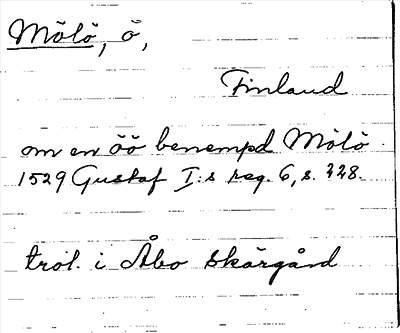 Mölö, ö,
Finland
om en öö benempd Mölö
1529 Gustaf I:s reg. 6, s. 328.
trol. i Åbo skärgård